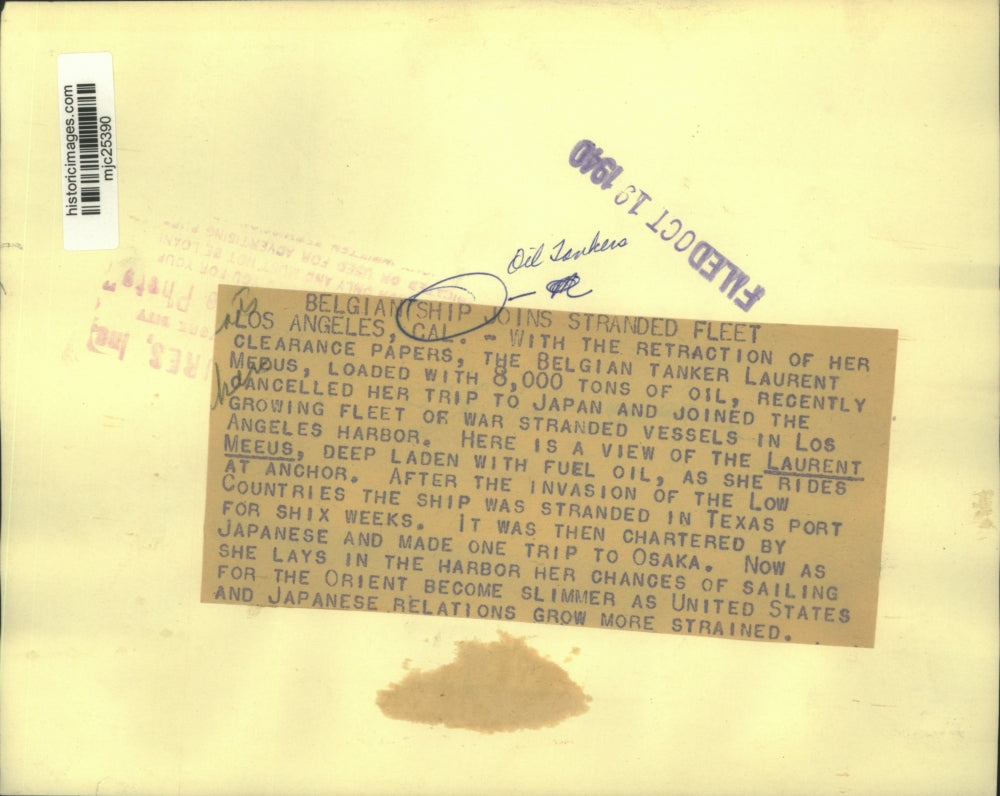 historicimages.com
mjc25390
FILED OCT 19 1940
Oil Tankers
BELGIAN SHIP JOINS STRANDED FLEET
LOS ANGELES, CAL. - WITH THE RETRACTION OF HER
CLEARANCE PAPERS, THE BELGIAN TANKER LAURENT
MEEUS, LOADED WITH 8,000 TONS OF OIL, RECENTLY
CANCELLED HER TRIP TO JAPAN AND JOINED THE
GROWING FLEET OF WAR STRANDED VESSELS IN LOS
ANGELES HARBOR. HERE IS A VIEW OF THE LAURENT
MEEUS, DEEP LADEN WITH FUEL OIL, AS SHE RIDES
AT ANCHOR. AFTER THE INVASION OF THE LOW
COUNTRIES THE SHIP WAS STRANDED IN TEXAS PORT
FOR SHIX WEEKS. IT WAS THEN CHARTERED BY
JAPANESE AND MADE ONE TRIP TO OSAKA. NOW AS
SHE LAYS IN THE HARBOR HER CHANCES OF SAILING
FOR THE ORIENT BECOME SLIMMER AS UNITED STATES
AND JAPANESE RELATIONS GROW MORE STRAINED.